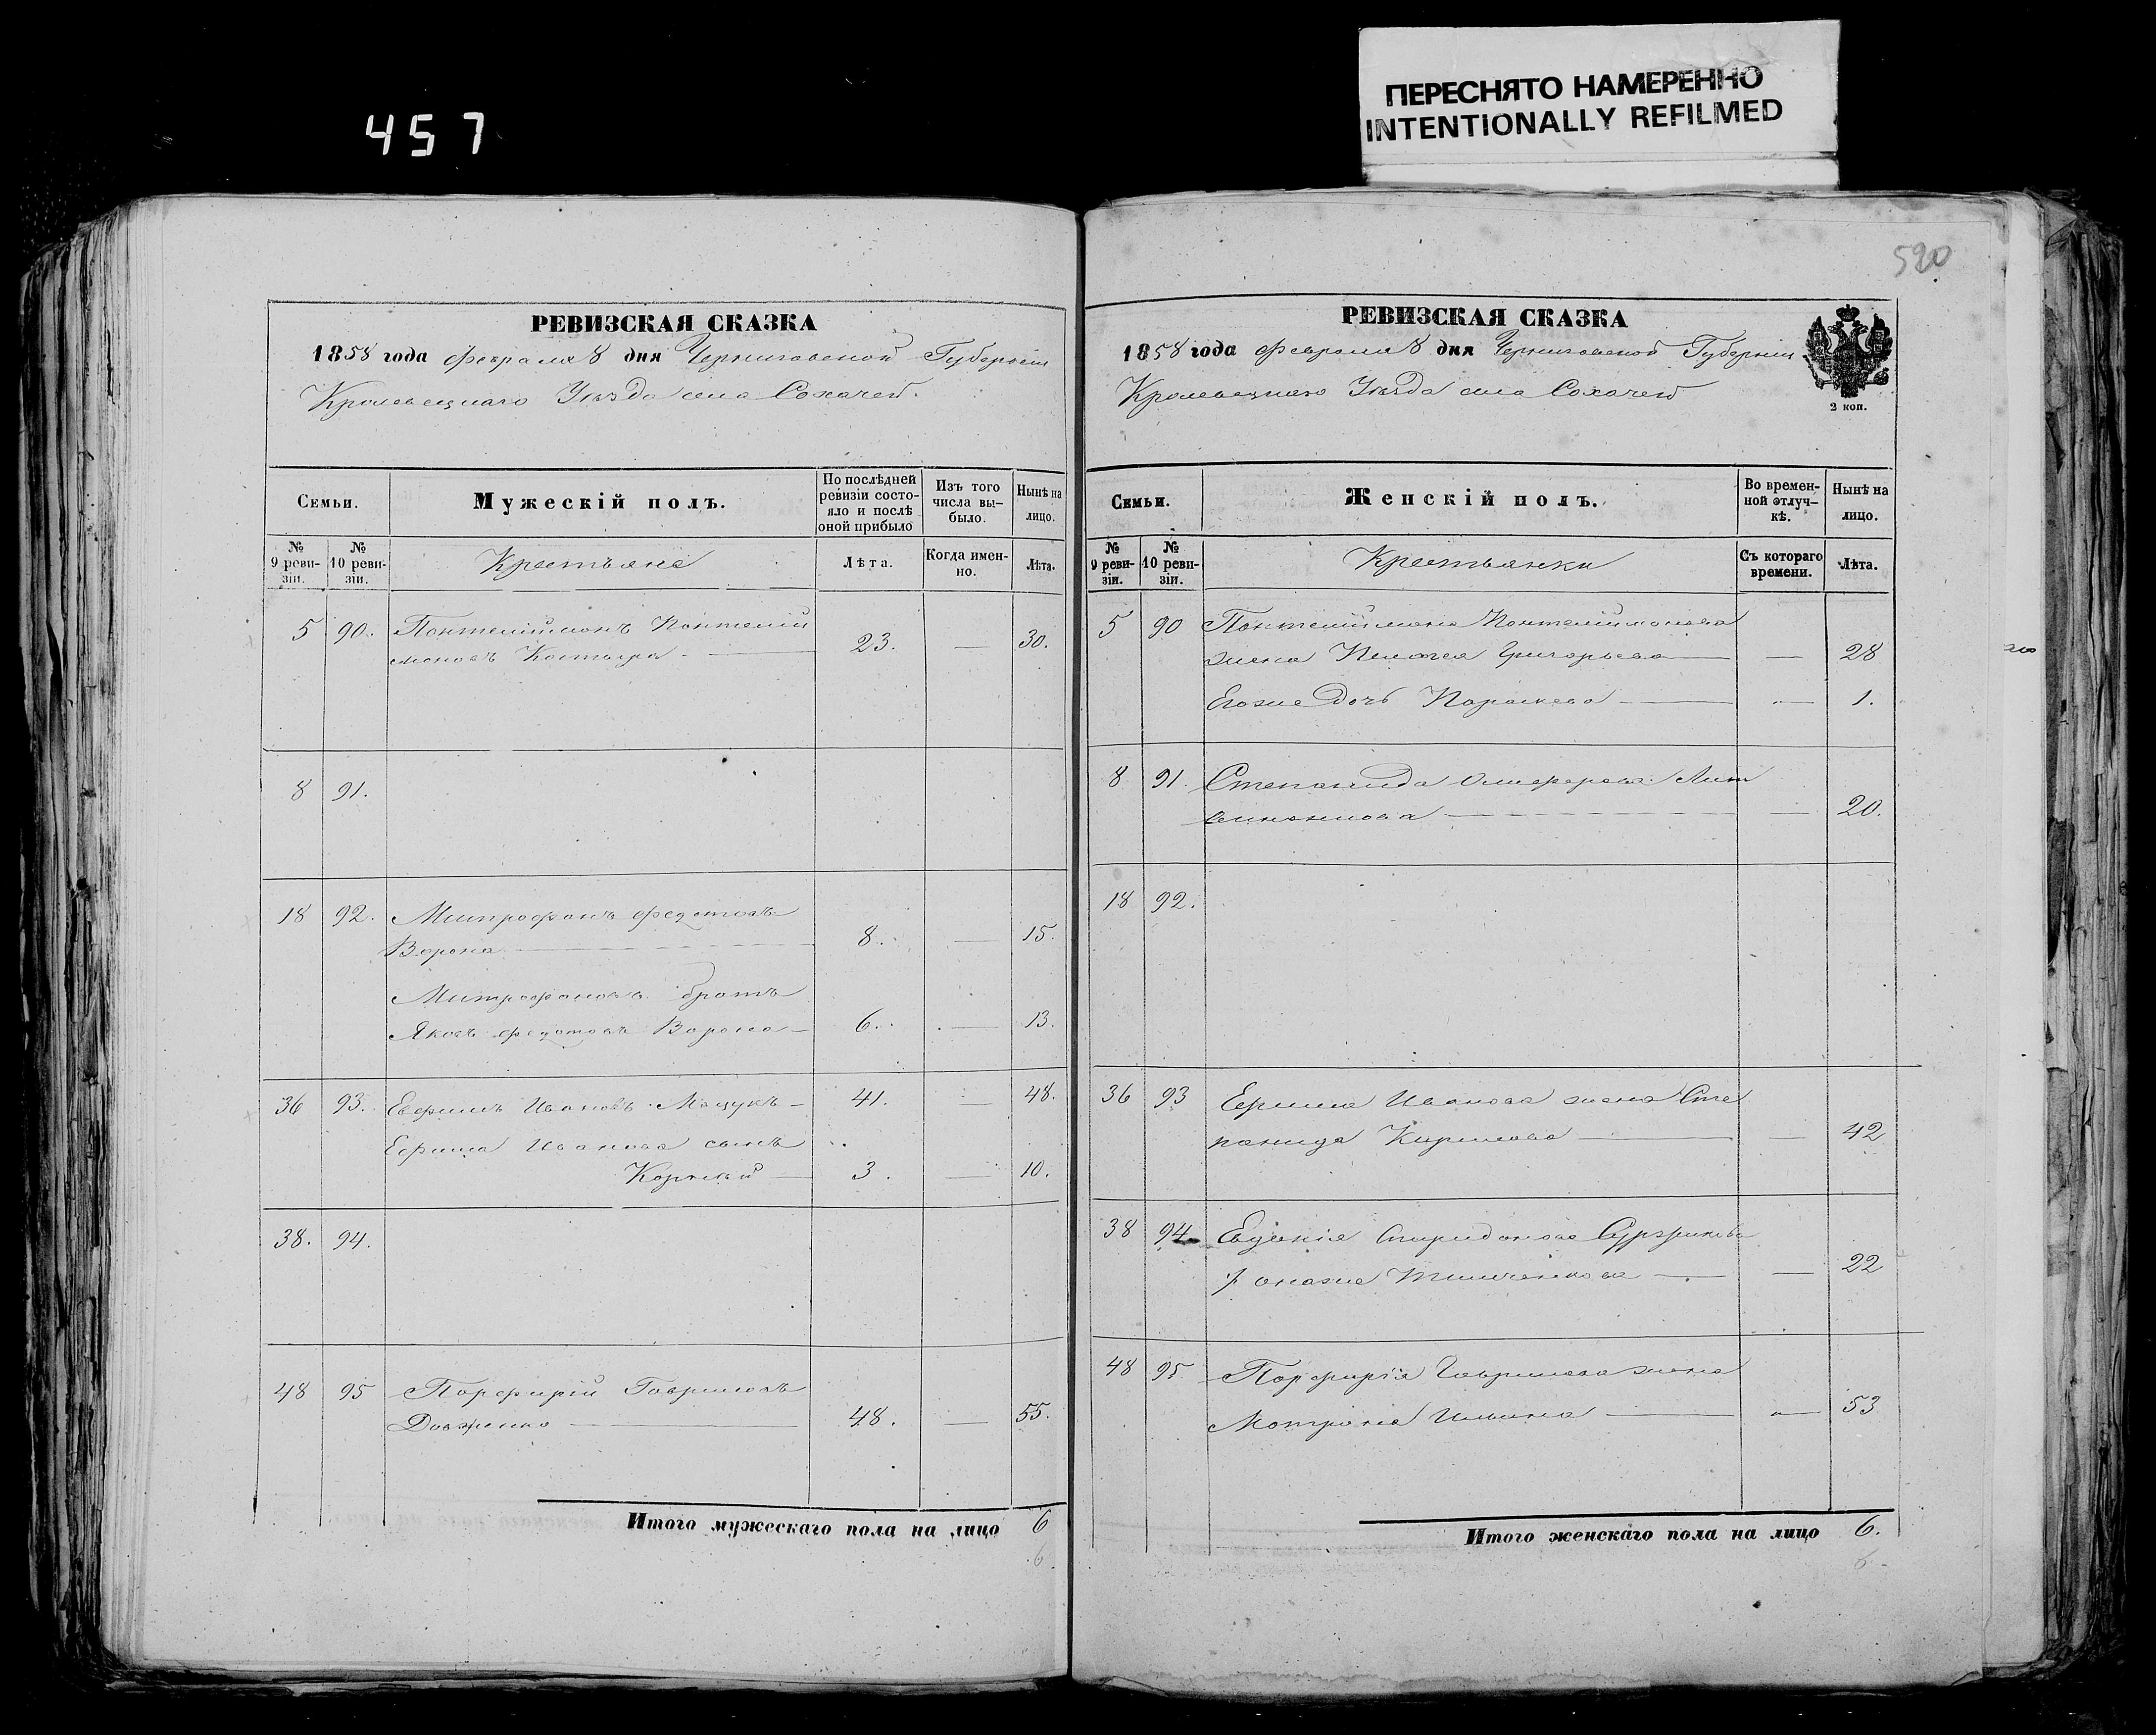 457
ПЕРЕСНЯТО НАМЕРЕННО
INTENTIONALLY REFILMED
РЕВИЗСКАЯ СКАЗКА
1858 года Февраля 8 дня Черниговской Губерніи
Кролевецкаго Уѣзда села Сохачей.
Семьи.
Мужескій полъ.
По послѣдней ревизіи состояло и послѣ оной прибыло
Изъ того числа выбыло.
Нынѣ на лицо.
№ 9 ревизіи.
№ 10 ревизіи.
Крестьяне
Лѣта.
Когда именно.
Лѣта.
5 90. Понтелиймонъ Понтелий
моновъ 23. — 30.
8 91.
18 92. Митрофанъ Федотовъ
Ворона 8. — 15.
Митрофановъ братъ
Яковъ Федотовъ Ворона 6. — 13.
36 93. Ефимъ Ивановъ Мацукъ 41. — 48.
Ефима Иванова сынъ
Корнѣй 3. — 10.
38. 94.
48 95 Порфирій Гавриловъ
Довженко 48. — 55.
Итого мужескаго пола на лицо 6
6
520
РЕВИЗСКАЯ СКАЗКА
1858 года Февраля 8 дня Черниговской Губерніи
Кролевецкаго Уѣзда села Сохачей
2 коп.
Семьи.
Женскій полъ.
Во временной отлучкѣ.
Нынѣ на лицо.
№ 9 ревизіи.
№ 10 ревизіи.
Крестьянки
Съ котораго времени.
Лѣта.
5 90 Понтелиймона Понтелиймонова
жена Григорьева — 28
Егоже дочь Параскева — 1.
8 91. Степанида Литвиненкова — 20.
18 92.
36 93 Ефима Иванова жена Сте
панида Кирилова — 42
38 94. Евдокія Спиридонова
онаже Тимченкова — 22
48 95. Порфирія Гаврилова жена
Мотрона Ильина — 53
Итого женскаго пола на лицо 6.
6.